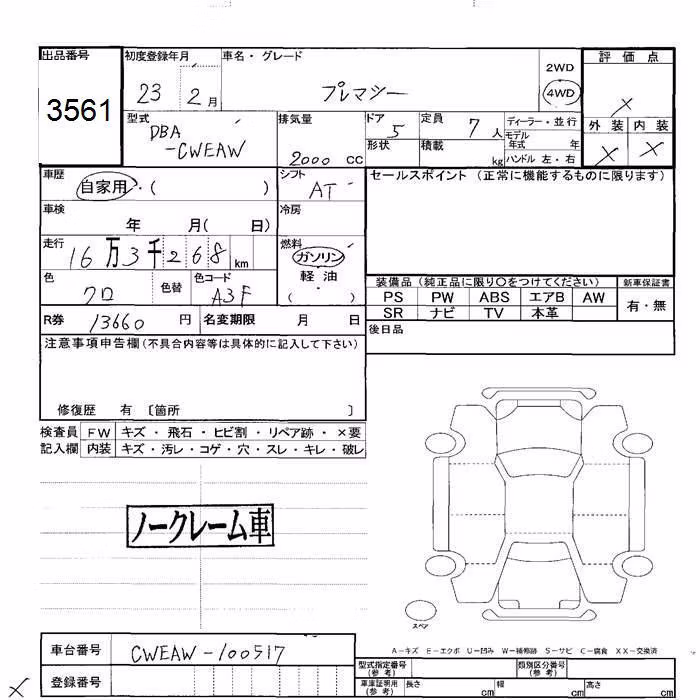 出品番号 初度登録年月 車名・グレード 評価点
3561 23 2月 プレマシー 2WD 4WD ×
型式 排気量 ドア 定員 ディーラー・並行 外装 内装
DBA -CWEAW 2000 cc 5 7人 モデル年式 年 × ×
形状 積載 kg ハンドル 左・右
車歴 シフト セールスポイント (正常に機能するものに限ります)
自家用・( ) AT
車検 冷房
年 月( 日)
走行 燃料
16万3千268 km ガソリン
色 色替 色コード 軽油
クロ A3F ( )
装備品 (純正品に限り○をつけてください) 新車保証書
PS PW ABS エアB AW 有・無
SR ナビ TV 本革
R券 13660 円 名変期限 月 日 後日品
注意事項申告欄 (不具合内容等は具体的に記入して下さい)
修復歴 有 〔箇所 〕
検査員 FW キズ・飛石・ヒビ割・リペア跡・×要
記入欄 内装 キズ・汚レ・コゲ・穴・スレ・キレ・破レ
ノークレーム車
スペア
A-キズ E-エクボ U-凹み W-補修跡 S-サビ C-腐食 XX-交換済
車台番号 CWEAW-100517
型式指定番号 (参考) 類別区分番号 (参考)
登録番号
車庫証明用 (参考) 長さ cm 幅 cm 高さ cm
×